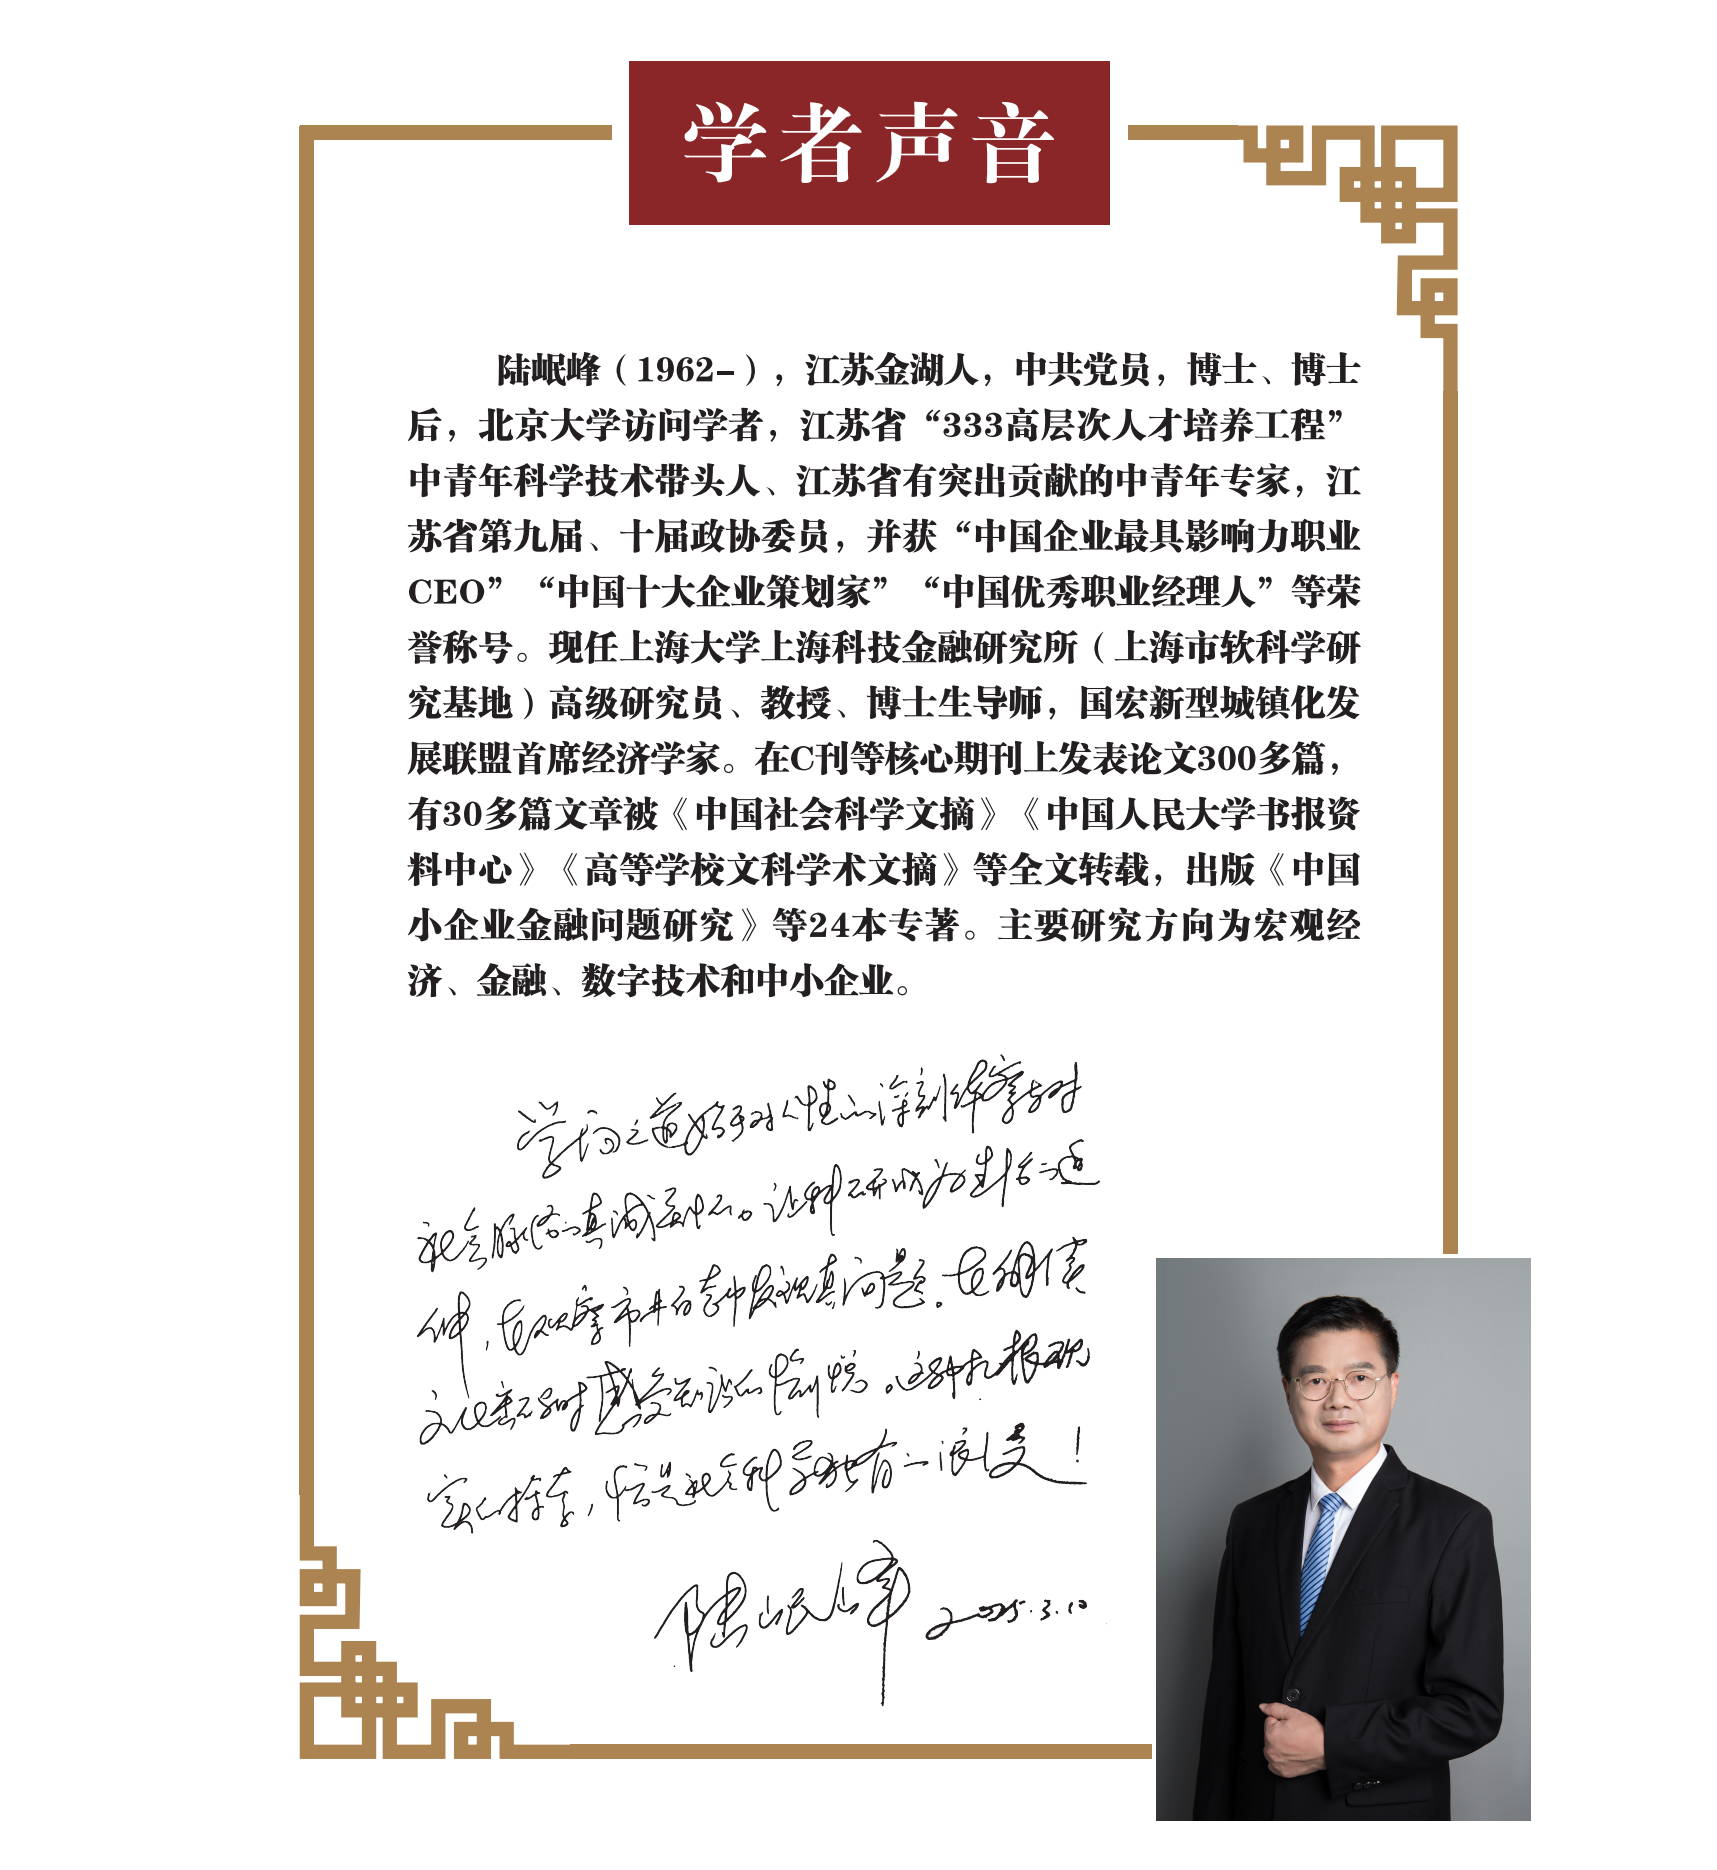 学者声音
陆岷峰（1962-），江苏金湖人，中共党员，博士、博士
后，北京大学访问学者，江苏省“333高层次人才培养工程”
中青年科学技术带头人、江苏省有突出贡献的中青年专家，江
苏省第九届、十届政协委员，并获“中国企业最具影响力职业
CEO”“中国十大企业策划家”“中国优秀职业经理人”等荣
誉称号。现任上海大学上海科技金融研究所（上海市软科学研
究基地）高级研究员、教授、博士生导师，国宏新型城镇化发
展联盟首席经济学家。在C刊等核心期刊上发表论文300多篇，
有30多篇文章被《中国社会科学文摘》《中国人民大学书报资
料中心》《高等学校文科学术文摘》等全文转载，出版《中国
小企业金融问题研究》等24本专著。主要研究方向为宏观经
济、金融、数字技术和中小企业。
学问之道始于对人性的深刻体察与对
社会脉络的真诚关怀。让科研成为生活的延
伸，在观察市井百态中发现真问题。在翻阅
文化密码时感受知识的愉悦。这种扎根现
实的探索，恰是社会科学独有的浪漫！
陆岷峰 2025.3.10